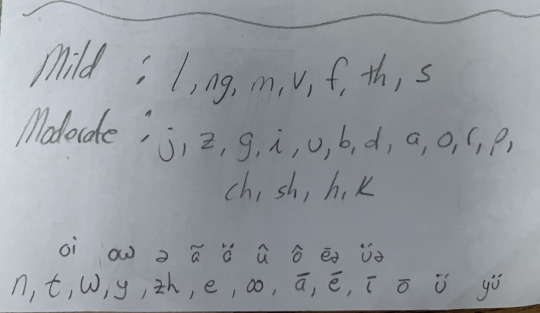 Mild : l, ng, m, v, f, th, s
Moderate : j, z, g, i, u, b, d, a, o, r, p,
ch, sh, h, k
oi aw ə ã ä û ô ēə üə
n, t, w, y, zh, e, oo, ā, ē, ī ō ü yü